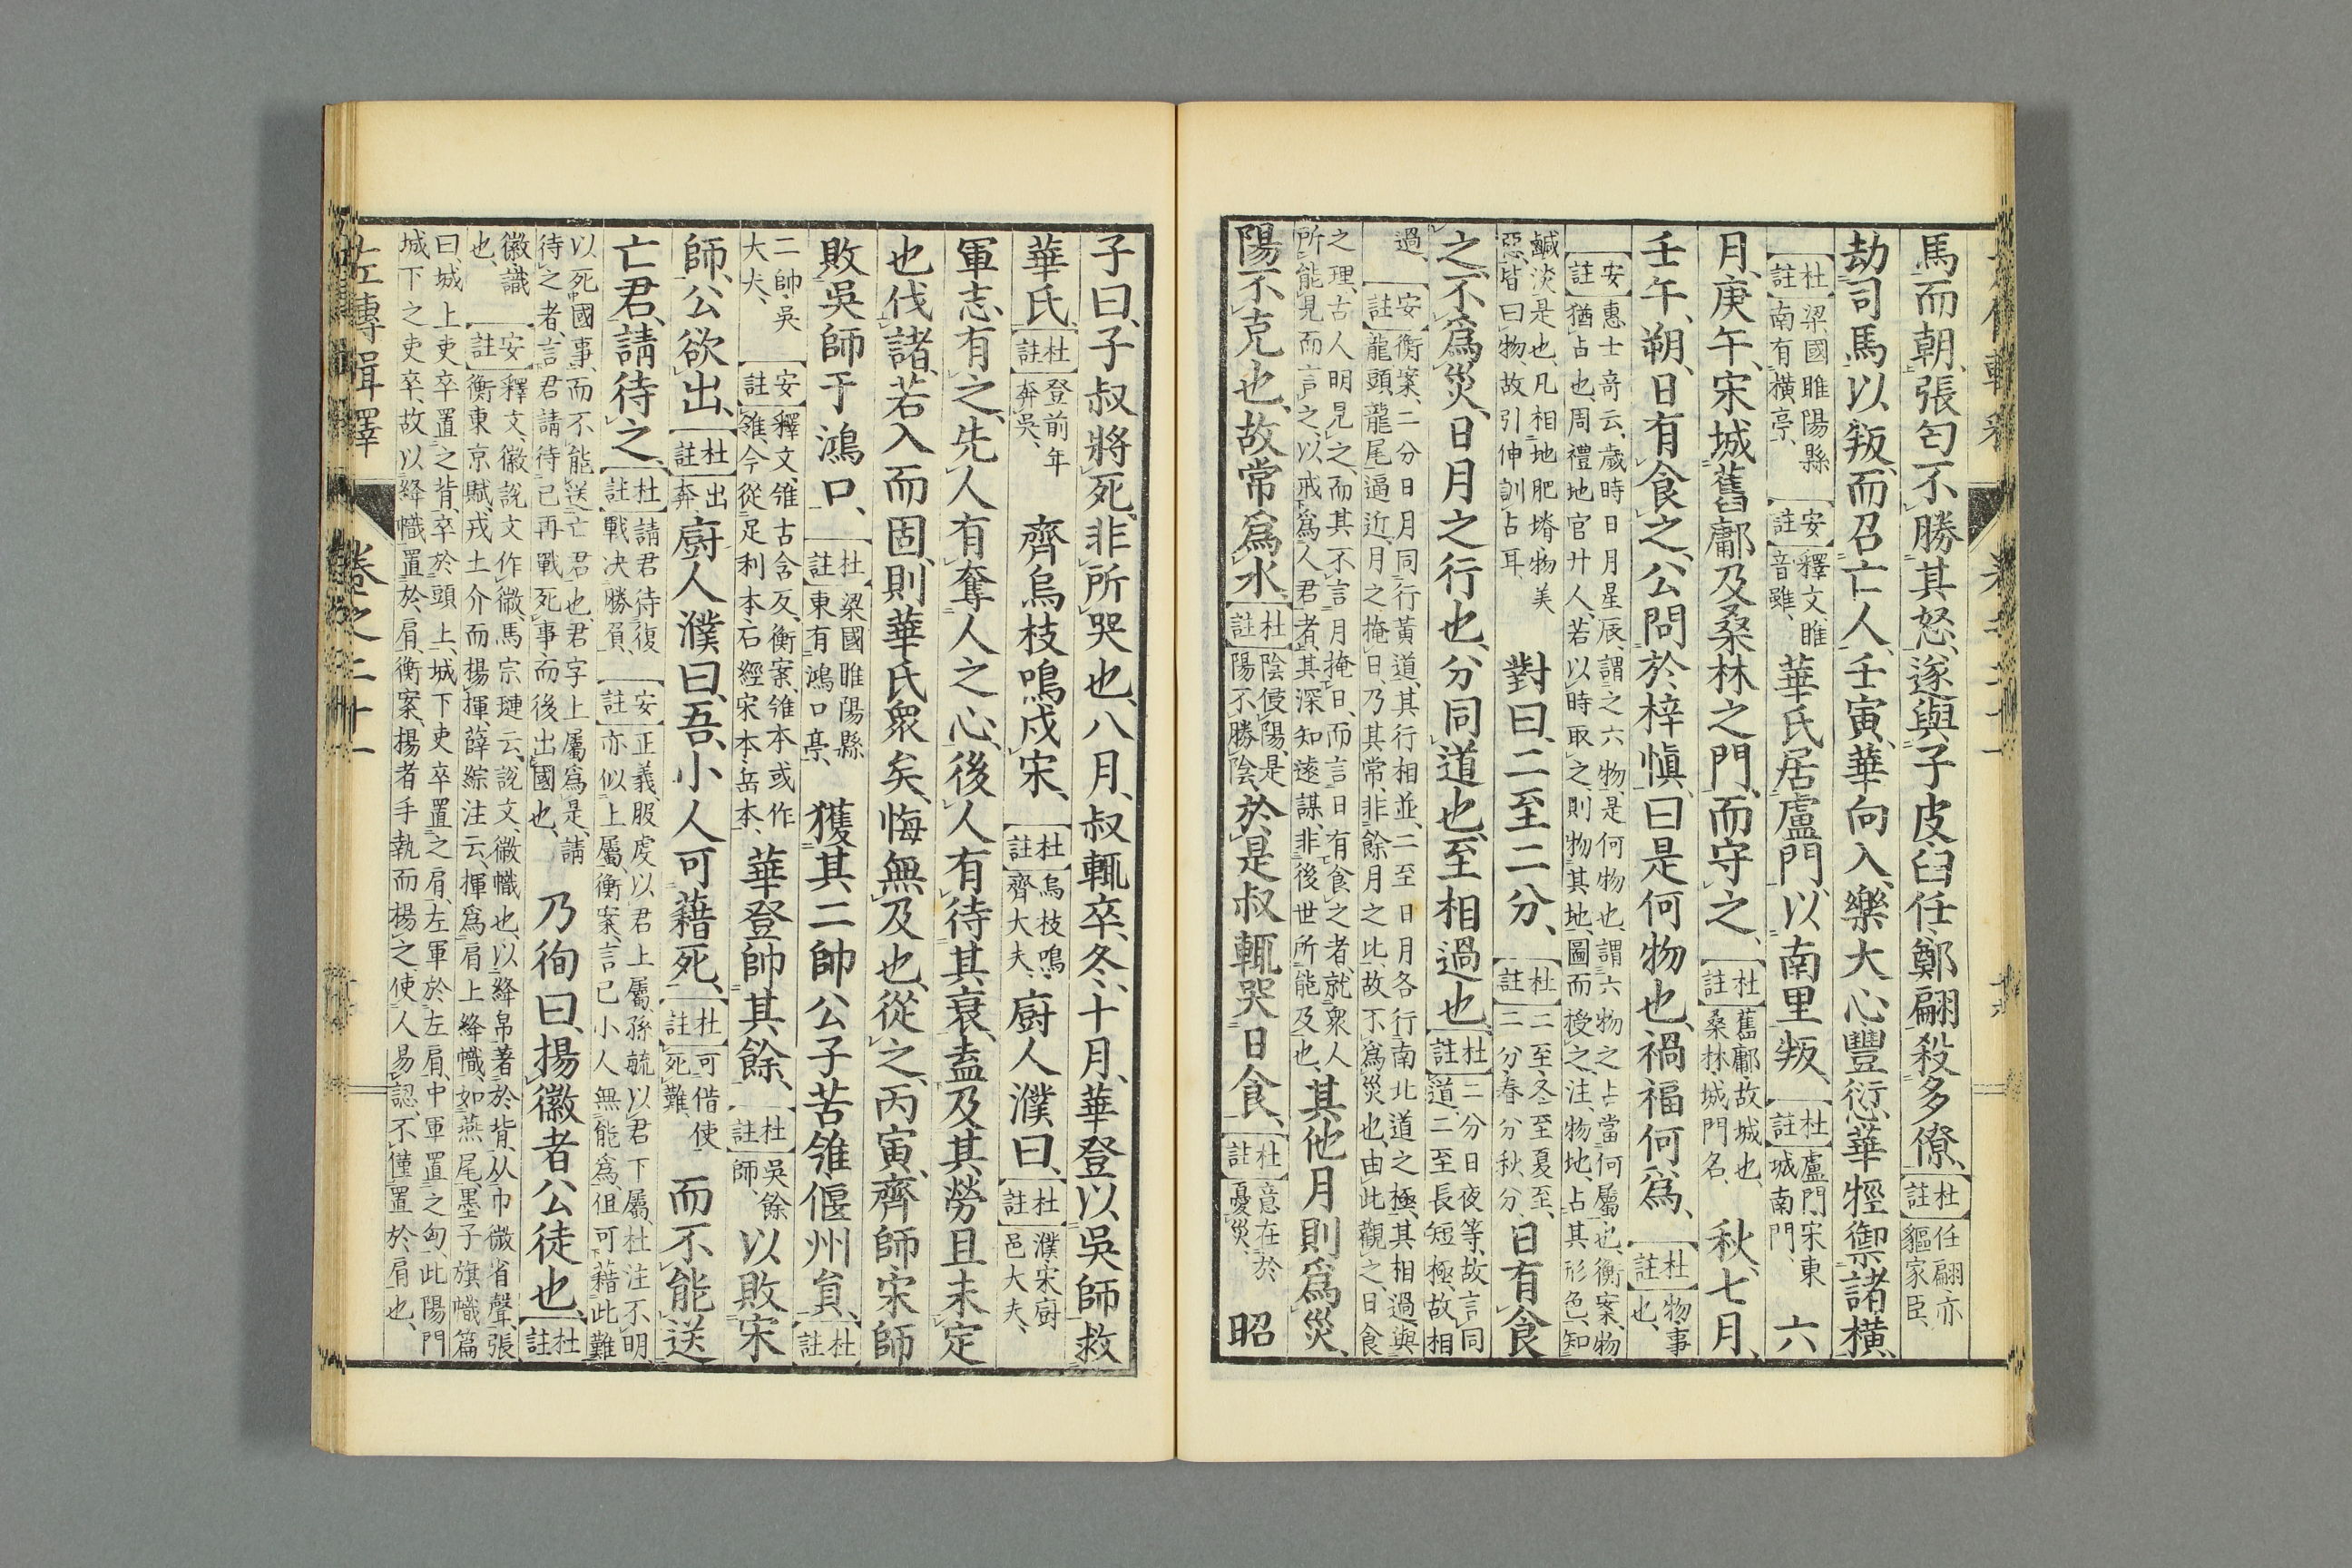 馬而朝、張匄不勝其怒、遂與子皮臼任、鄭翩殺多僚、【杜註】任翩亦貙家臣、
劫司馬以叛、而召亡人、壬寅、華向入、樂大心豐愆華牼禦諸橫、
【杜註】梁國睢陽縣南有橫亭、【安註】釋文、睢音雖、華氏居盧門、以南里叛、【杜註】盧門、宋東城南門、六
月、庚午、宋城舊鄘及桑林之門、而守之、【杜註】舊鄘、故城也、桑林、城門名、秋、七月、
壬午、朔、日有食之、公問於梓愼、曰是何物也、禍福何爲、【杜註】物事也、
【安註】惠士奇云、歲時日月星辰、謂之六物、是何物也、謂六物之占當何屬也、衡案、物
猶占也、周禮地官廾人、若以時取之、則物其地、圖而授之、注、物地、占其形色、知
鹹淡是也、凡相地肥塉物美
惡、皆曰物、故引伸訓占耳、對曰、二至二分、【杜註】二至、冬至夏至、二分、春分秋分、日有食
之、不爲災、日月之行也、分同道也、至相過也、【杜註】二分日夜等、故言同道、二至長短極、故相
過、【安註】衡案、二分日月同行黃道、其行相並、二至日月各行南北道之極、其相過、與
龍頭龍尾逼近、月之掩日、乃其常、非餘月之比、故不爲災也、由此觀之、日食
之理、古人明見之、而其不言月掩日、而言日有食之者、就衆人
所能見而言之、以戒爲人君者、其深知遠謀、非後世所能及也、其他月則爲災、
陽不克也、故常爲水、【杜註】陰侵陽、是陽不勝陰、於是叔輒哭日食、【杜註】意在於憂災、昭
子曰、子叔將死、非所哭也、八月、叔輒卒、冬、十月、華登以吳師救
華氏、【杜註】登前年奔吳、齊烏枝鳴戍宋、【杜註】烏枝鳴、齊大夫、廚人濮曰、【杜註】濮、宋廚邑大夫、
軍志、有之、先人有奪人之心、後人有待其衰、盍及其勞且未定
也伐諸、若入而固、則華氏衆矣、悔無及也、從之、丙寅、齊師宋師
敗吳師于鴻口、【杜註】梁國睢陽縣東有鴻口亭、獲其二帥公子苦雂偃州員、【杜註】
二帥、吳大夫、【安註】釋文、雂古含反、衡案、雂本或作雒、今從足利本、石經宋本、岳本、華登帥其餘、【杜註】吳餘師、以敗宋
師、公欲出、【杜註】出奔、廚人濮曰、吾小人可藉死、【杜註】可借使死難、而不能送
亡君、請待之、【杜註】請君待復戰決勝負、【安註】正義、服虔以君上屬、孫毓以君下屬、杜注不明、
亦似上屬、衡案、言己小人無能爲、但可藉此難
以死國事、而不能送亡君也、君字上屬爲是、請
待之者、言君請待己再戰死事、而後出國也、乃徇曰、揚徽者公徒也、【杜註】
徽識也、【安註】釋文、徽說文作微、馬宗璉云、說文、微幟也、以絳帛著於背、从巾微省聲、張
衡東京賦、戎士介而揚揮、薛綜注云、揮爲肩上絳幟、如燕尾、墨子旗幟篇
曰、城上吏卒置之背、卒於頭上、城下吏卒置之肩、左軍於左肩、中軍置之匈、此陽門
城下之吏卒、故以絳幟置於肩、衡案、揚者手執而揚之、使人易認、不僅置於肩也、
左傳輯釋 卷之二十一